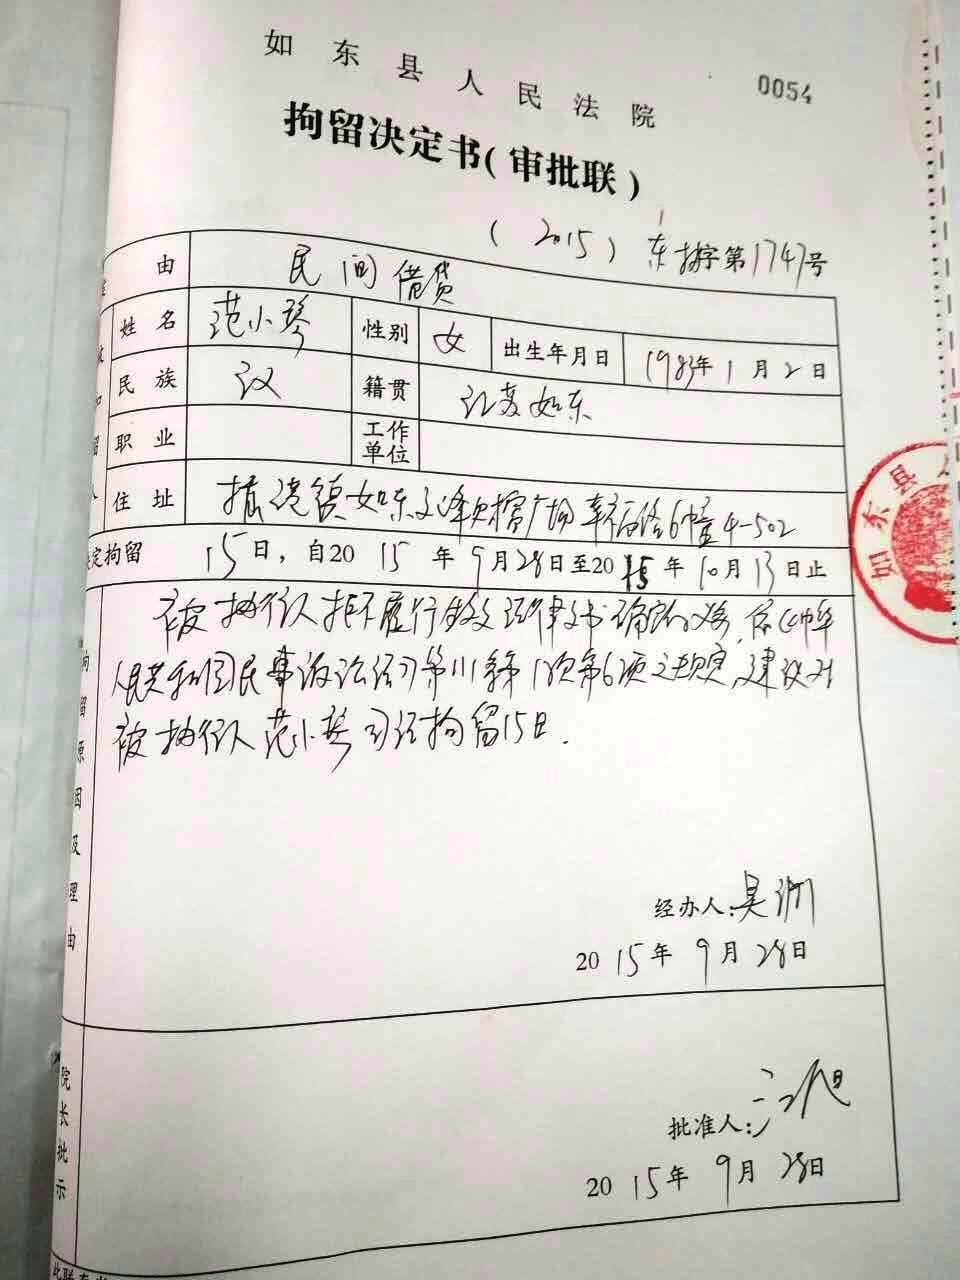 如东县人民法院
0054
拘留决定书(审批联)
(2015)东执字第1747号
由 民间借贷
姓名 范小琴 性别 女 出生年月日 1983年1月2日
民族 汉 籍贯 江苏如东
职业 工作单位
住址 掘港镇如东文峰大桥广场幸福路6幢4-502
定拘留 15日，自2015年9月28日至2015年10月13日止
拘留原因及理由
被执行人拒不履行生效法律文书确定的义务，依《中华
人民共和国民事诉讼法》第111条第1款第6项之规定，建议对
被执行人范小琴司法拘留15日.
经办人:吴
2015年9月28日
院长批示
批准人:
2015年9月28日
如东县人